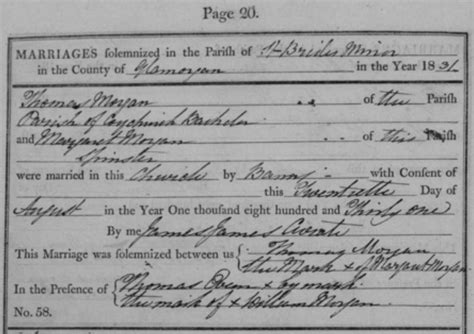 Page 20.
MARRIAGES solemnized in the Parish of St Brides Minor
in the County of Glamorgan in the Year 1831
Thomas Morgan of the Parish
Parish of Coychurch Bachelor
and Margaret Morgan of this Parish
Spinster
were married in this Church by Banns with Consent of
this Twentieth Day of
August in the Year One thousand eight hundred and Thirty one
By me James James Curate
This Marriage was solemnized between us Thomas Morgan
the Mark x of Margaret Morgan
In the Presence of Thomas Owen x by mark
the mark of x William Morgan
No. 58.